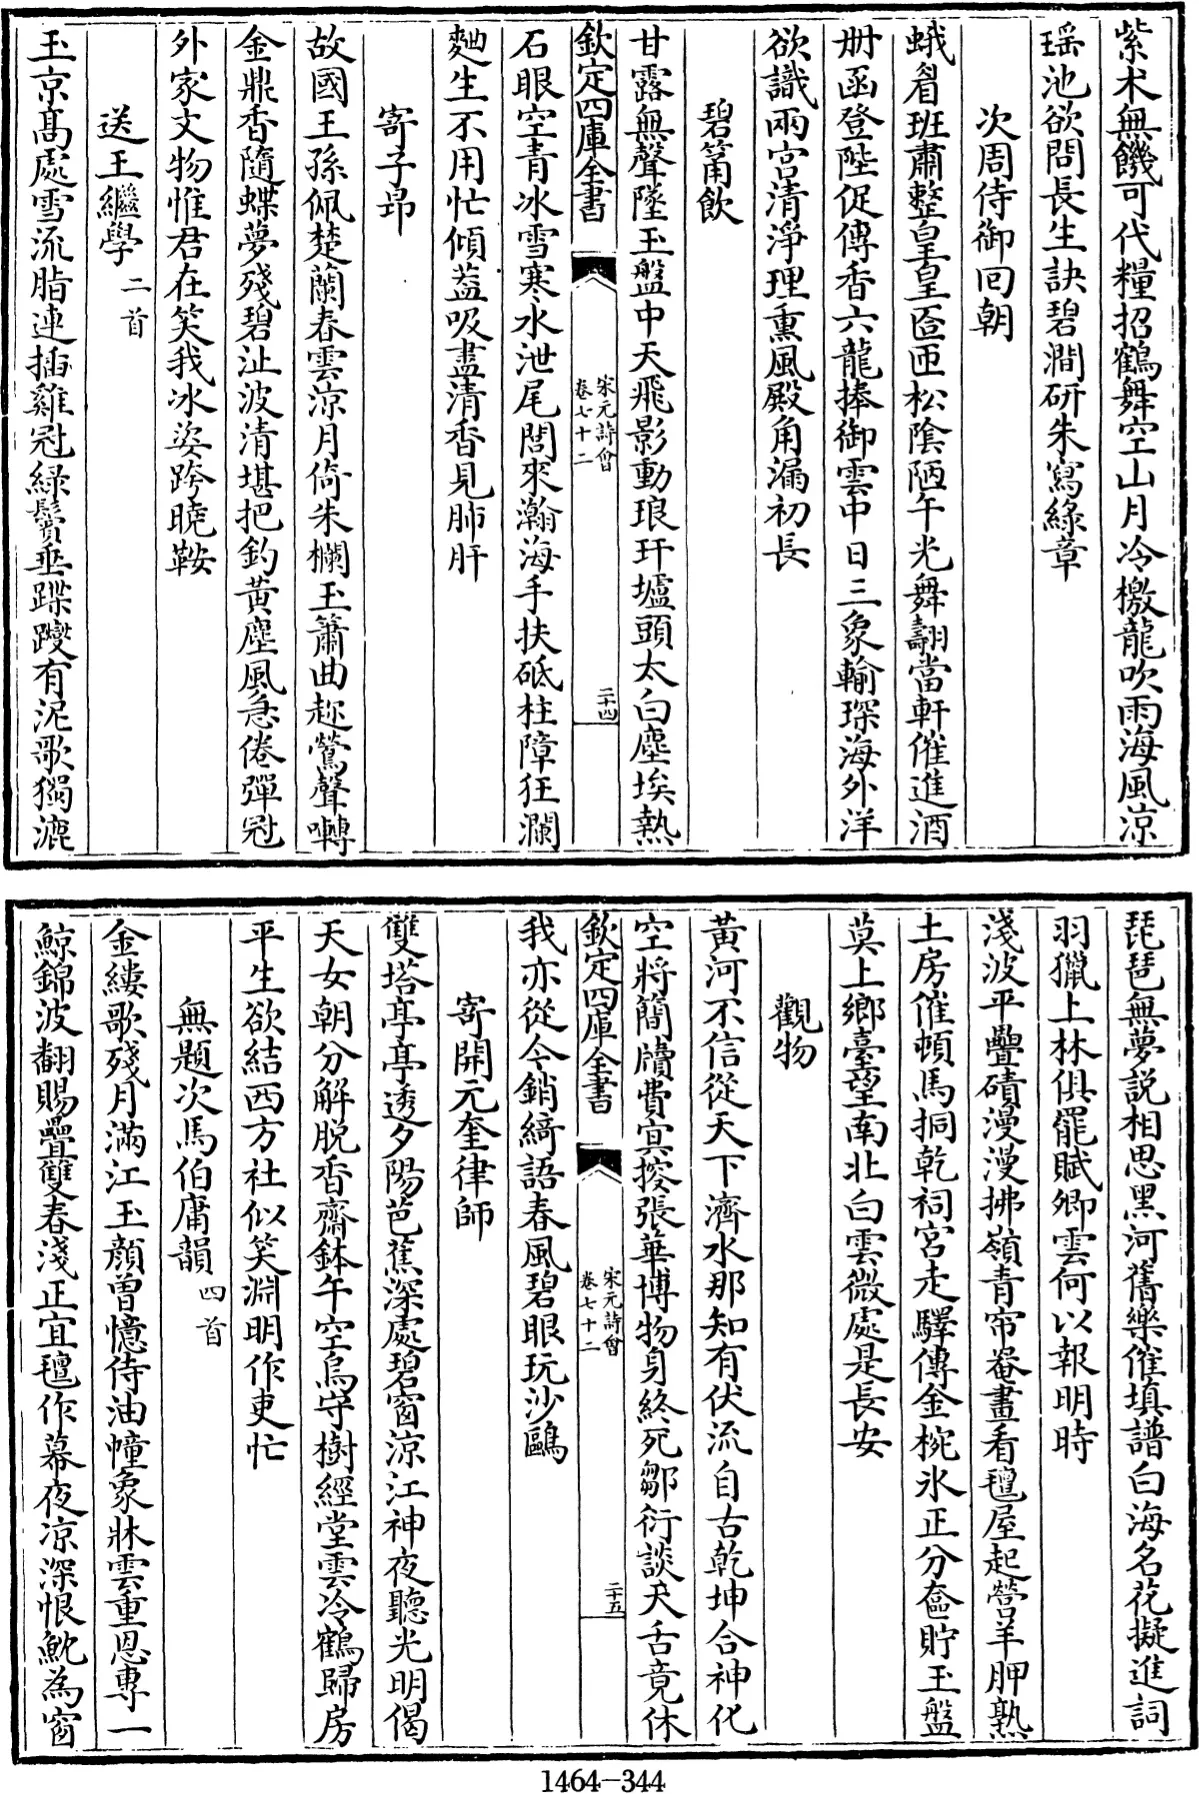 紫术無饑可代糧招鶴舞空山月冷檄龍吹雨海風凉
瑶池欲問長生訣碧澗研朱寫綠章
次周侍御回朝
蛾眉班肅整皇皇匼匝松陰陋午光舞翿當軒催進酒
册函登陛促傳香六龍捧御雲中日三象輸琛海外洋
欲識兩宫清淨理熏風殿角漏初長
碧筩飲
甘露無聲墜玉盤中天飛影動琅玕壚頭太白塵埃熱
欽定四庫全書
宋元詩會
卷七十二
二十四
石眼空青冰雪寒水泄尾閭來瀚海手扶砥柱障狂瀾
麯生不用忙傾葢吸盡清香見肺肝
寄子昂
故國王孫佩楚蘭春雲凉月倚朱欄玉簫曲趂鶯聲囀
金鼎香隨蝶夢殘碧沚波清堪把釣黄塵風急倦彈冠
外家文物惟君在笑我冰姿跨曉鞍
送王繼學 二首
玉京髙處雪流脂連插雞冠綠鬢垂蹀躞有泥歌獨漉
琵琶無夢説相思黑河舊樂催填譜白海名花擬進詞
羽獵上林俱罷賦卿雲何以報明時
淺波平疊磧漫漫拂嶺青帘罨畫看氊屋起營羊胛熟
土房催頓馬挏乾祠宮走驛傳金椀氷正分奩貯玉盤
莫上鄉臺望南北白雲微處是長安
觀物
黄河不信從天下濟水那知有伏流自古乾坤合神化
空將簡牘費㝠搜張華博物身終死鄒衍談天舌竟休
欽定四庫全書
宋元詩會
卷七十二
二十五
我亦從今銷綺語春風碧眼玩沙鷗
寄開元奎律師
雙塔亭亭透夕陽芭蕉深處碧窗凉江神夜聽光明偈
天女朝分解脱香齋鉢午空烏守樹經堂雲冷鶴歸房
平生欲結西方社似笑淵明作吏忙
無題次馬伯庸韻 四首
金縷歌殘月滿江玉顔曽憶侍油幢象牀雲重恩專一
鯨錦波翻賜疊雙春淺正宜氊作幕夜凉深恨魫為窗
1464-344